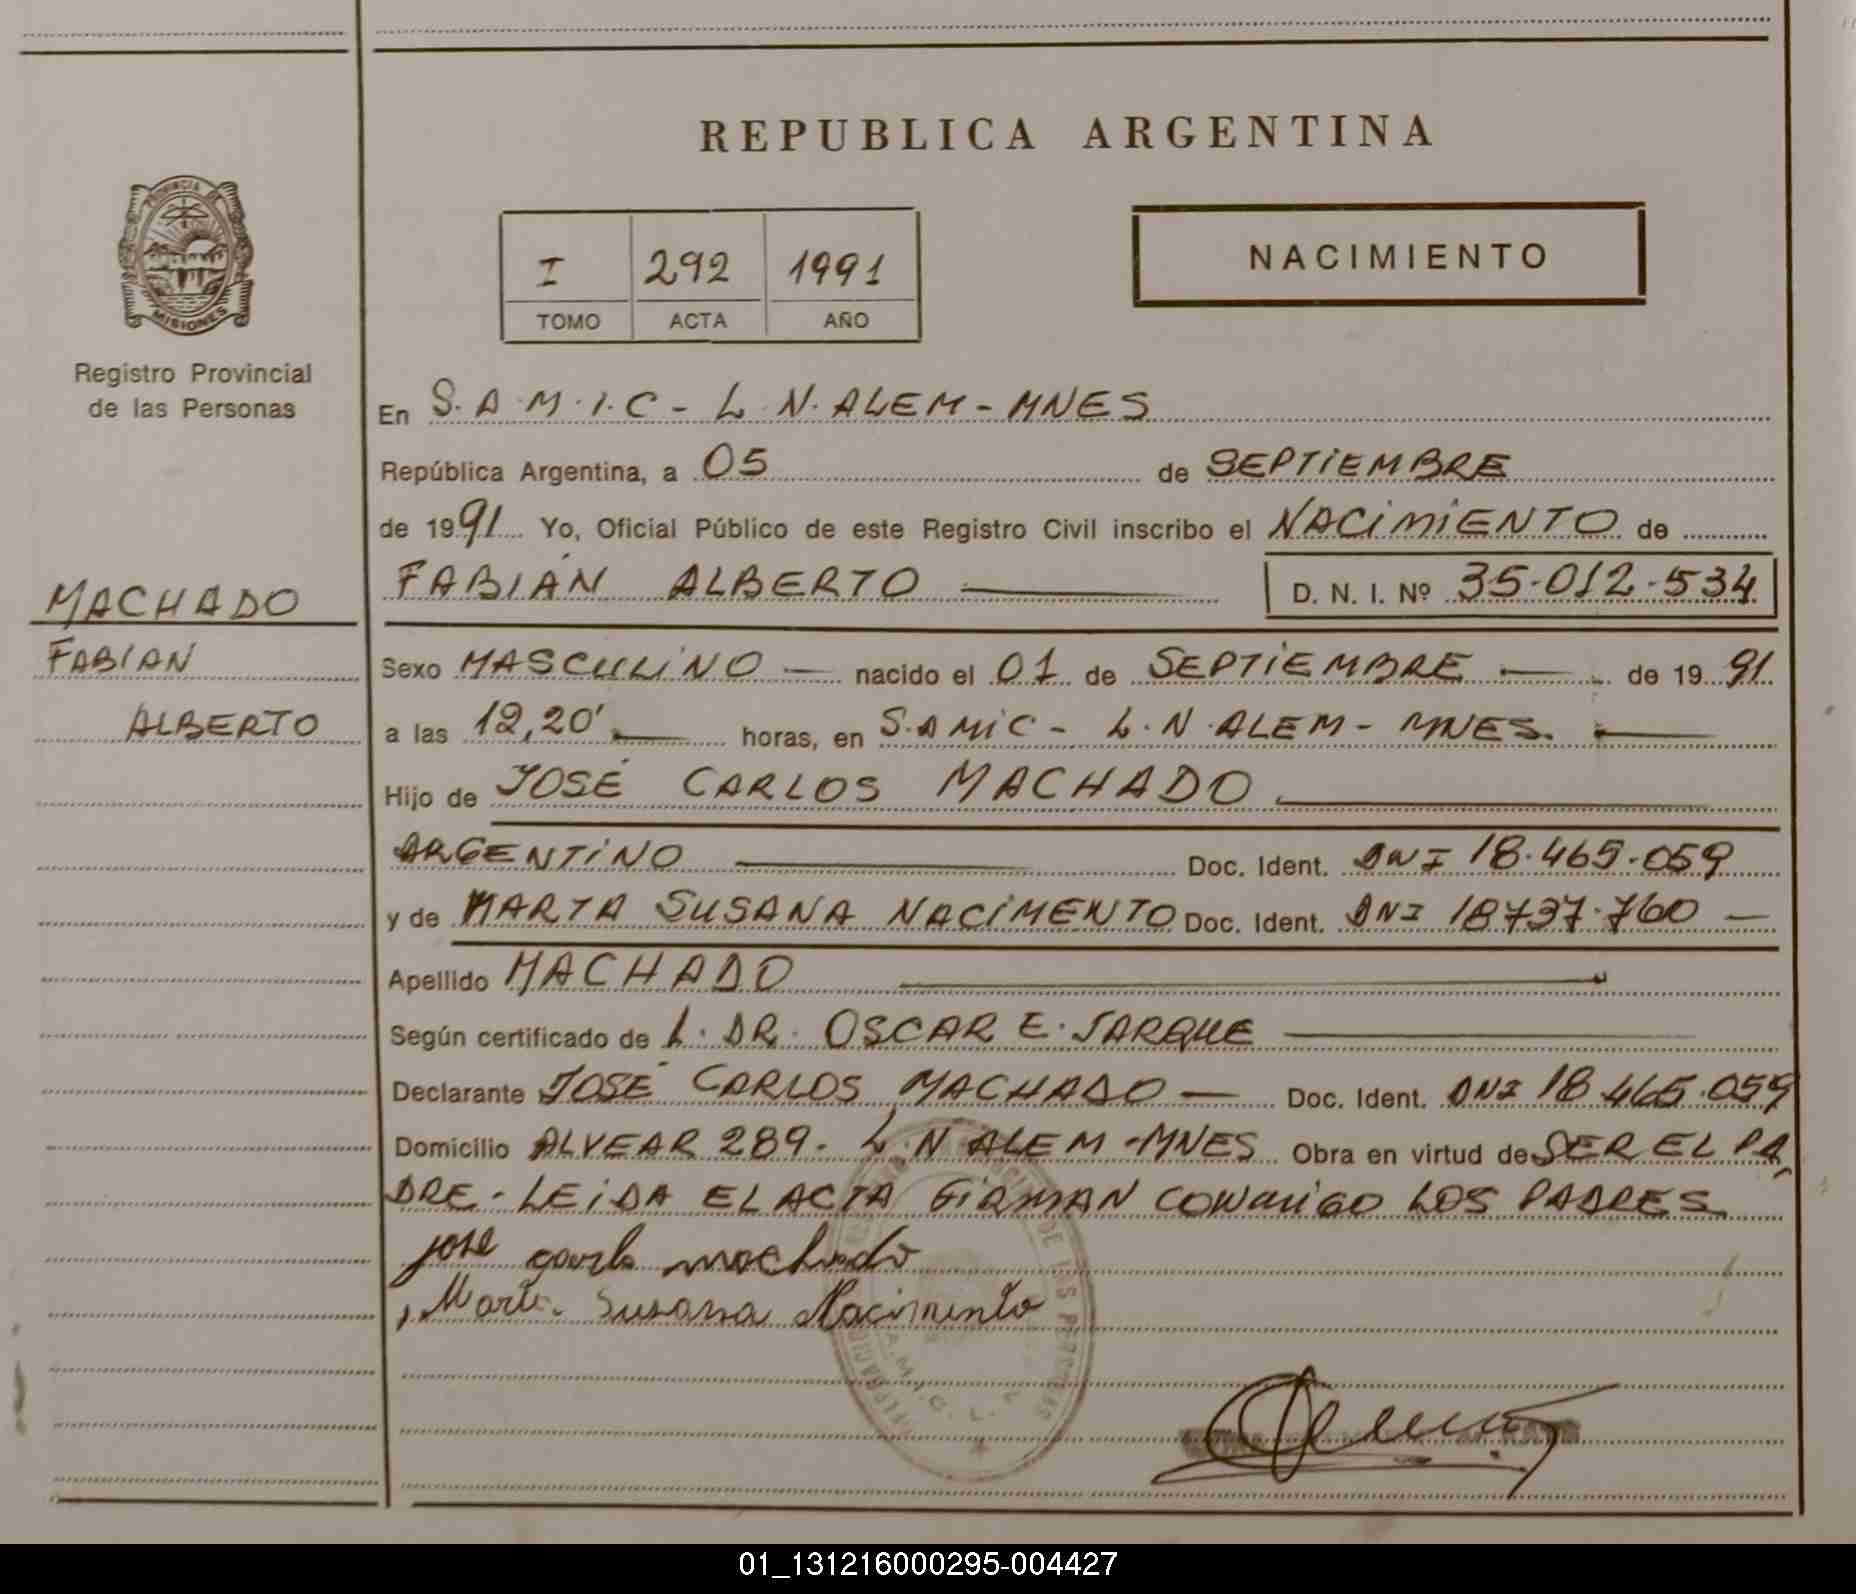 REPUBLICA ARGENTINA
PROVINCIA DE
MISIONES
Registro Provincial
de las Personas
I 292 1991
TOMO ACTA AÑO
NACIMIENTO
En S.A.M.I.C - L.N.ALEM - MNES
República Argentina, a 05 de SEPTIEMBRE
de 1991 Yo, Oficial Público de este Registro Civil inscribo el NACIMIENTO de
FABIÁN ALBERTO D. N. I. Nº 35.012.534
MACHADO
FABIAN
ALBERTO
Sexo MASCULINO nacido el 01 de SEPTIEMBRE de 19 91
a las 12,20' horas, en S.AMIC - L.N.ALEM - MNES.
Hijo de JOSÉ CARLOS MACHADO
ARGENTINO Doc. Ident. DNI 18.465.059
y de MARTA SUSANA NACIMENTO Doc. Ident. DNI 18737.760
Apellido MACHADO
Según certificado de L. DR. OSCAR E. JARQUE
Declarante JOSÉ CARLOS MACHADO Doc. Ident. DNI 18.465.059
Domicilio ALVEAR 289 - L.N ALEM - MNES Obra en virtud de SER EL PA
DRE - LEIDA EL ACTA FIRMAN CONMIGO LOS PADRES
jose carlo machado
Marta Susana Nacimento
DE LAS PERSONAS
01_131216000295-004427